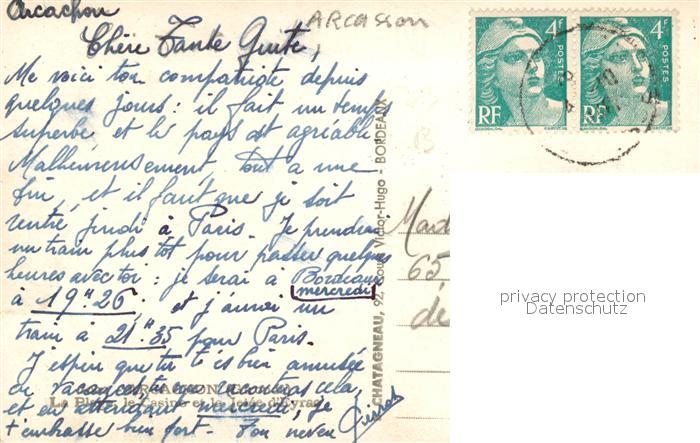 Arcachon
ARCAsson
Chère Tante Guite,
Me voici ton compatriote depuis
quelques jours : il fait un temps
superbe et le pays est agréable
Malheureusement tout a une
fin, et il faut que je sois
rentré jeudi à Paris. Je prendrai
un train plus tôt pour passer quelques
heures avec toi : je serai à Bordeaux
mercredi
à 19H26. et j'aurai un
train à 21H35 pour Paris.
J'espère que tu t'es bien amusée
en vacances, tu me raconteras cela,
et en attendant mercredi, je
t'embrasse bien fort. Ton neveu
ARCACHON
La Plage, le Casino et la Jetée d'Eyrac
CHATAGNEAU, 92, Cours Victor-Hugo - BORDEAUX
4F
POSTES
RF
4F
POSTES
RF
65,
de
privacy protection
Datenschutz